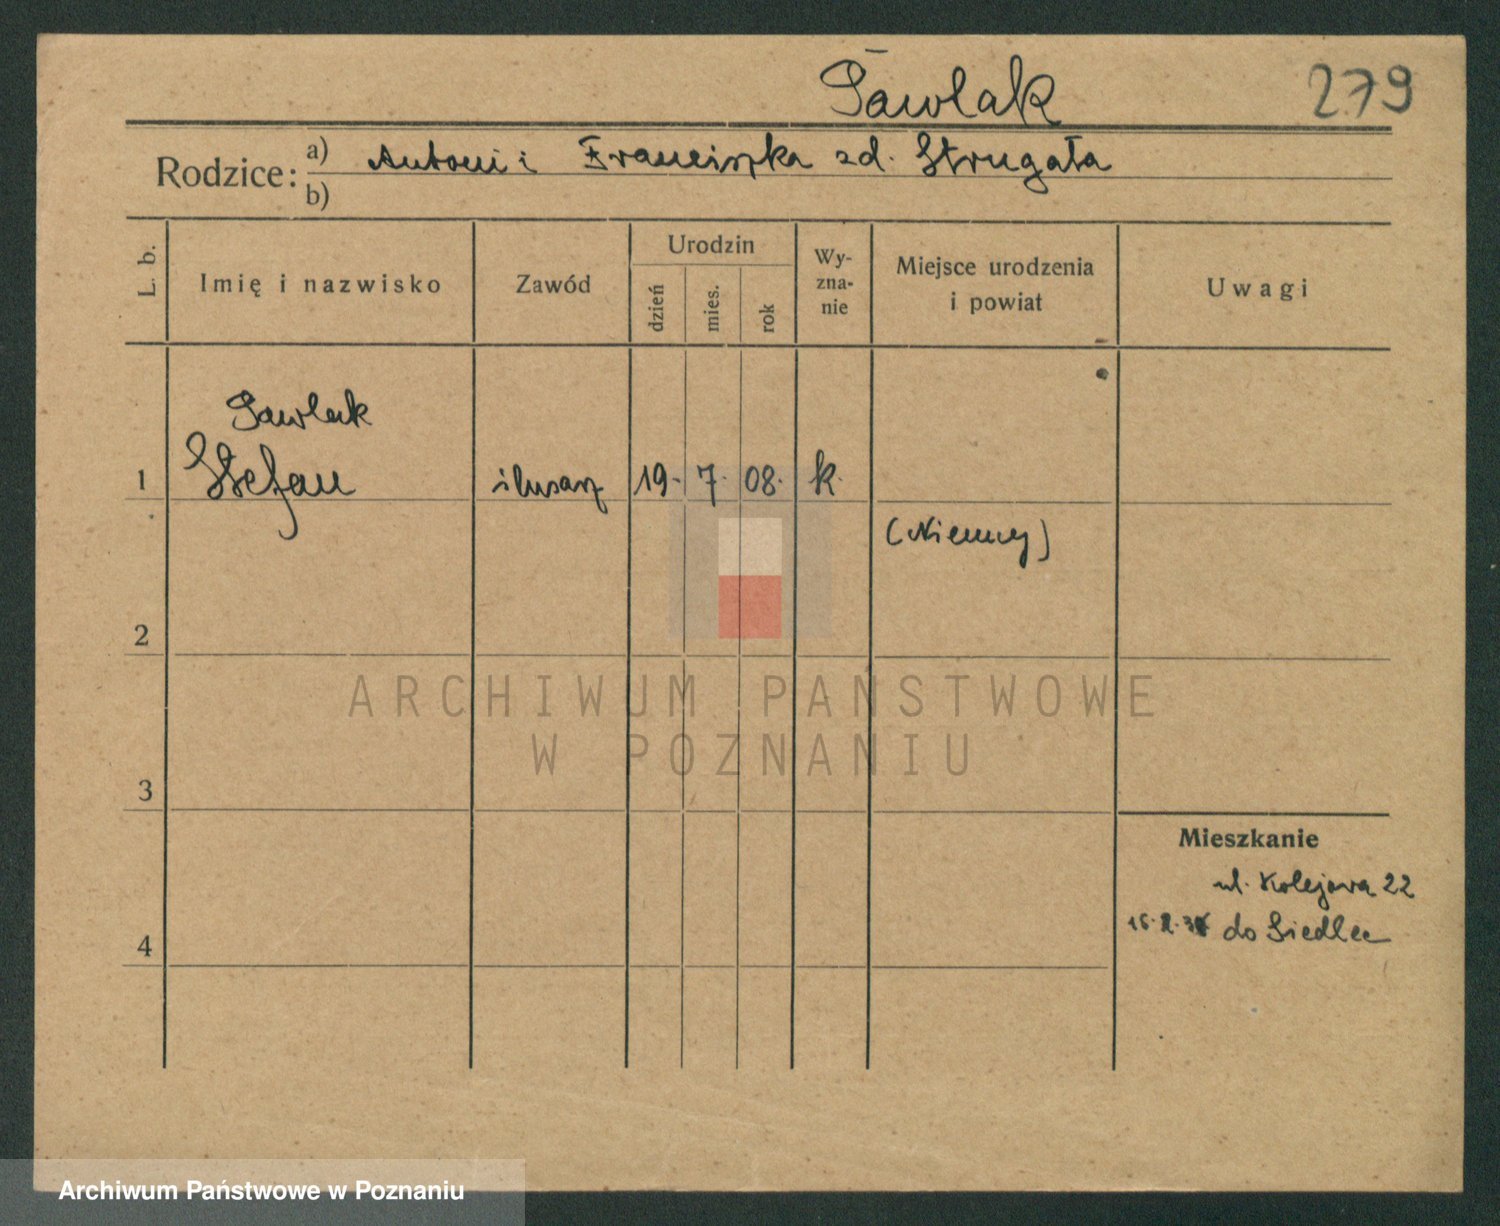 Pawlak 279
Rodzice: a) Antoni i Franciszka zd. Strugała
b)
L. b. Imię i nazwisko Zawód Urodzin dzień mies. rok Wy-zna-nie Miejsce urodzenia i powiat Uwagi
Pawlak
1 Stefan ślusarz 19. 7. 08. k.
(Niemcy)
2
ARCHIWUM PAŃSTWOWE
W POZNANIU
3
Mieszkanie
ul. Kolejowa 22
do Siedlec
4
Archiwum Państwowe w Poznaniu